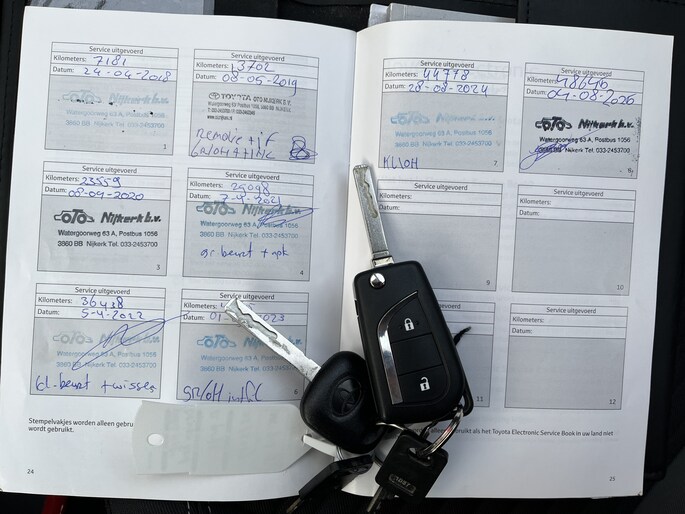 Service uitgevoerd
Kilometers: 7181
Datum: 24-04-2018
OTO Nijkerk b.v.
Watergoorweg 63 A, Postbus 1056
3860 BB Nijkerk Tel. 033-2453700
1
Service uitgevoerd
Kilometers: 13702
Datum: 08-05-2019
TOYOTA OTO NIJKERK B.V.
Service uitgevoerd
Kilometers: 23559
Datum: 08-04-2020
OTO Nijkerk b.v.
Watergoorweg 63 A, Postbus 1056
3860 BB Nijkerk Tel. 033-2453700
3
Service uitgevoerd
Kilometers: 29098
Datum: 7-4-2021
OTO Nijkerk b.v.
Watergoorweg 63 A, Postbus 1056
3860 BB Nijkerk Tel. 033-2453700
gr beurt + apk
4
Service uitgevoerd
Kilometers: 36438
Datum: 5-4-2022
OTO
Watergoorweg 63 A, Postbus 1056
3860 BB Nijkerk Tel. 033-2453700
kl-beurt + wissers
Service uitgevoerd
Kilometers:
Datum: 01 2023
OTO Nijkerk b.v.
Watergoorweg 63 A, Postbus 1056
3860 BB Nijkerk Tel. 033-2453700
6
Stempelvakjes worden alleen gebru
wordt gebruikt.
24
Service uitgevoerd
Kilometers: 44778
Datum: 28-08-2024
OTO Nijkerk b.v.
Watergoorweg 63 A, Postbus 1056
3860 BB Nijkerk Tel. 033-2453700
KL/OH
7
Service uitgevoerd
Kilometers: 48646
Datum:
OTO Nijkerk b.v.
Watergoorweg 63 A, Postbus 1056
3860 BB Nijkerk Tel. 033-2453700
8
Service uitgevoerd
Kilometers:
Datum:
9
Service uitgevoerd
Kilometers:
Datum:
10
uitgevoerd
11
Service uitgevoerd
Kilometers:
Datum:
12
bruikt als het Toyota Electronic Service Book in uw land niet
25